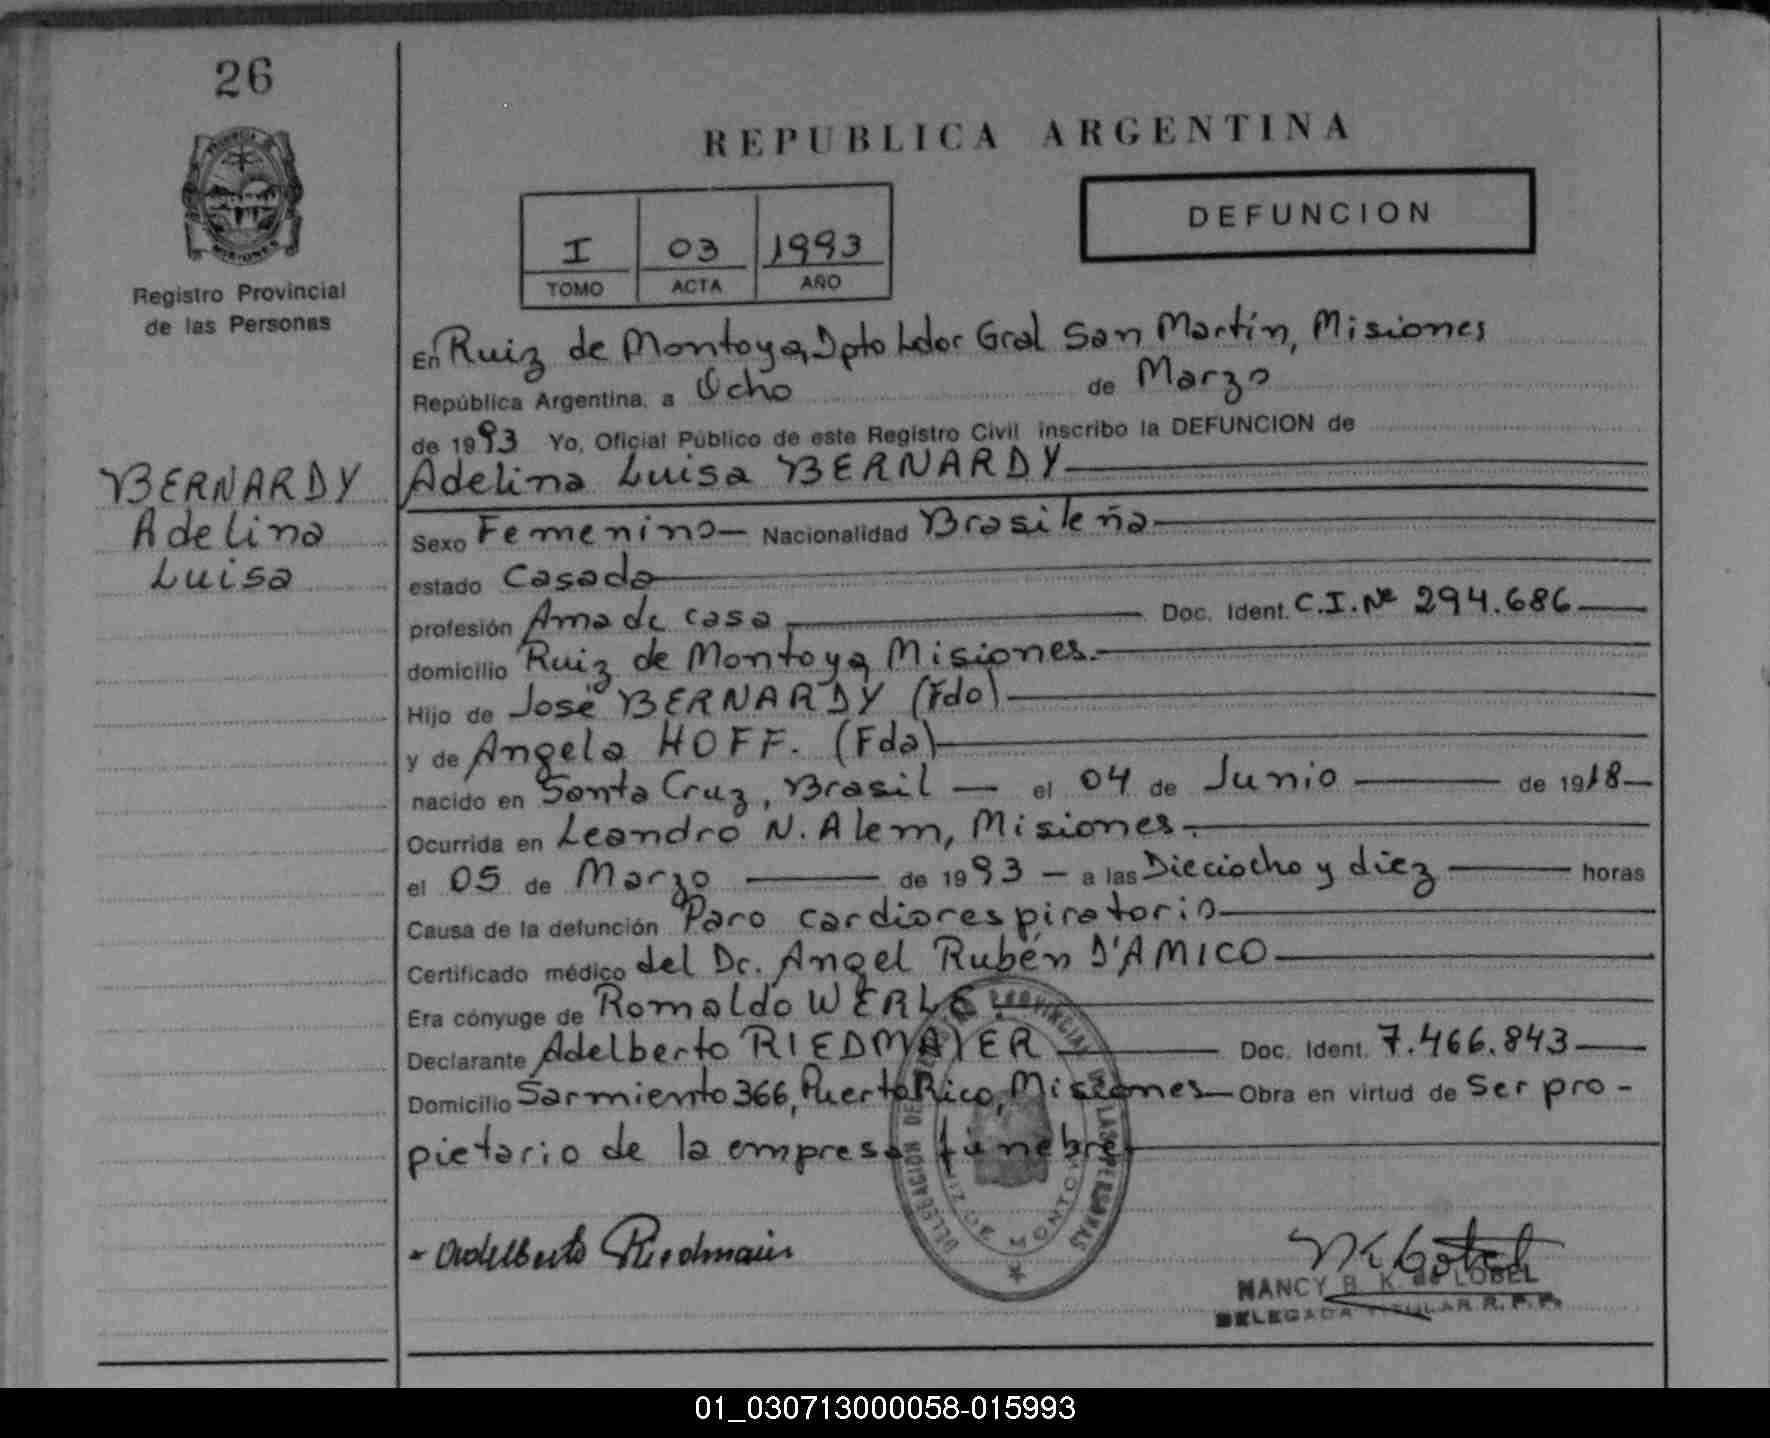 26
Registro Provincial
de las Personas
BERNARDY
Adelina
Luisa
REPUBLICA ARGENTINA
DEFUNCION
I 03 1993
TOMO ACTA AÑO
En Ruiz de Montoya, Dpto Ldor Gral San Martín, Misiones
República Argentina, a Ocho de Marzo
de 1993 Yo, Oficial Público de este Registro Civil inscribo la DEFUNCION de
Adelina Luisa BERNARDY
Sexo Femenino - Nacionalidad Brasileña
estado Casada
profesión Ama de casa Doc. Ident. C.I. Nº 294.686
domicilio Ruiz de Montoya, Misiones.
Hijo de José BERNARDY (Fdo)
y de Angela HOFF. (Fda)
nacido en Santa Cruz, Brasil - el 04 de Junio de 1918
Ocurrida en Leandro N. Alem, Misiones.
el 05 de Marzo de 1993 - a las Dieciocho y diez horas
Causa de la defunción Paro cardiorespiratorio
Certificado médico del Dr. Angel Rubén D'AMICO
Era cónyuge de Romaldo WERLE.
Declarante Adelberto RIEDMAIER Doc. Ident. 7.466.843
Domicilio Sarmiento 366, Puerto Rico, Misiones - Obra en virtud de Ser pro-
pietario de la empresa fúnebre
Adelberto Riedmaier
NANCY B. K. de LOBEL
DELEGADA TITULAR R. P. P.
01_030713000058-015993